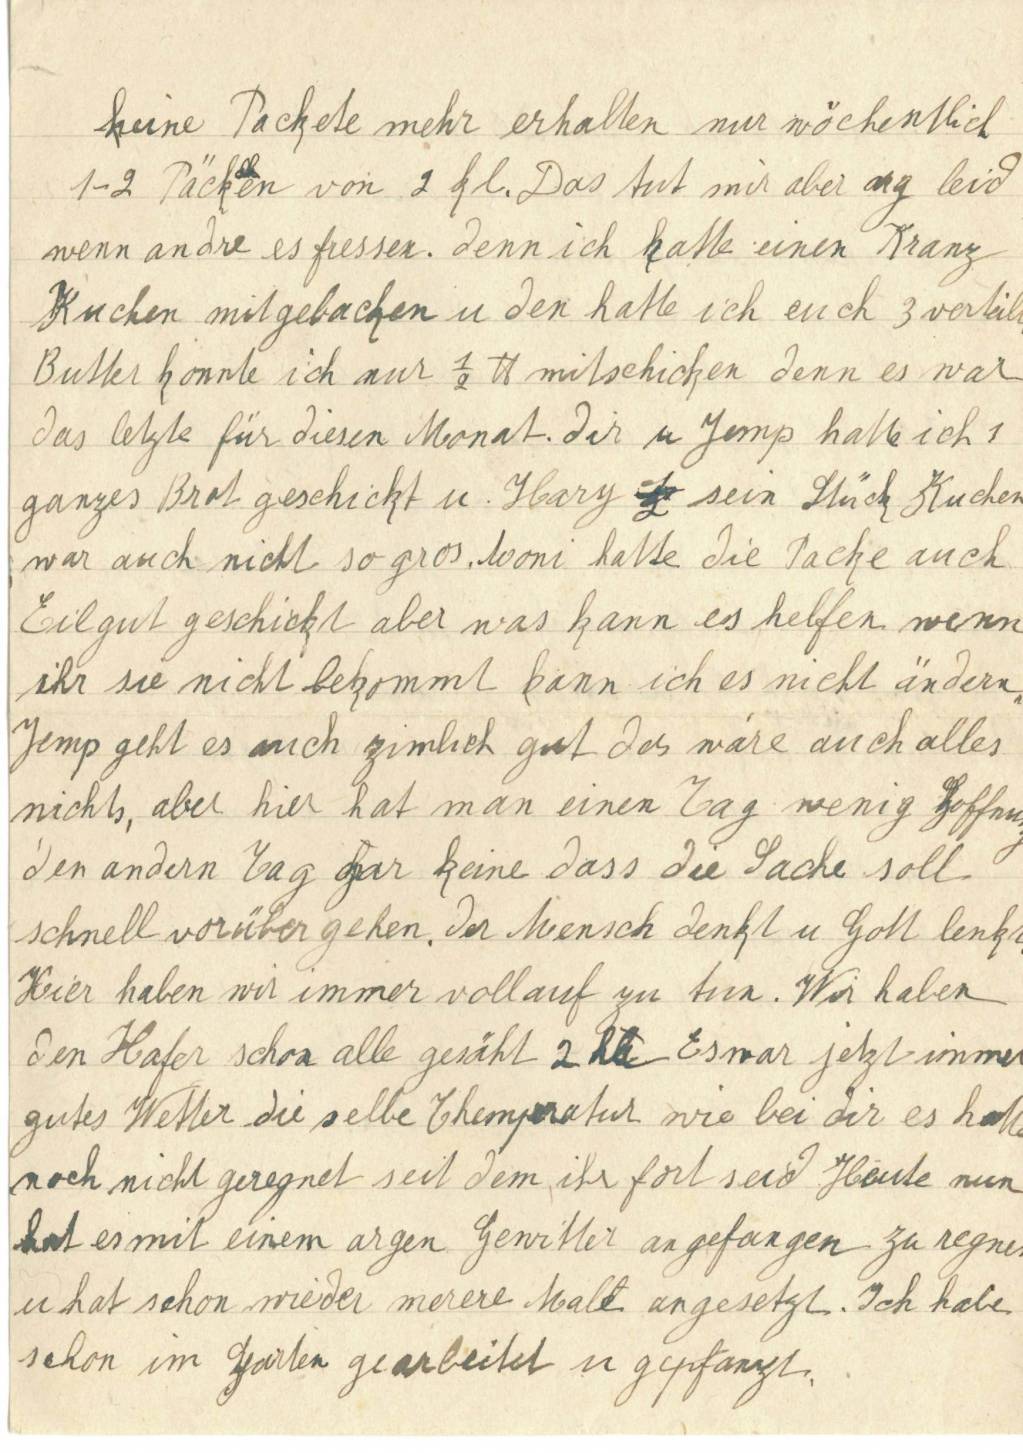 keine Packete mehr erhalten nur wöchentlich
1-2 Päckchen von 2 kl. Das tut mir aber arg leid
wenn andre es fressen. denn ich hatte einen Kranz
Kuchen mitgebacken u den hatte ich euch 3 verteilt
Butter konnte ich nur ½ ℔ mitschicken denn es war
das letzte für diesen Monat. dir u Jemp hatte ich 1
ganzes Brot geschickt u. Hary ½ sein Stück Kuchen
war auch nicht so gros. Moni hatte die Packe auch
Eilgut geschickt aber was kann es helfen wenn
ihr sie nicht bekommt kann ich es nicht ändern.
Jemp geht es auch zimlich gut das wäre auch alles
nichts, aber hier hat man einen Tag wenig Hoffnung
den andern Tag gar keine dass die Sache soll
schnell vorüber gehen. der Mensch denkt u Gott lenkt
Hier haben wir immer vollauf zu tun. Wir haben
den Hafer schon alle gesäht 2 Es war jetzt immer
gutes Wetter die selbe Themperatur wie bei dir es hatte
noch nicht geregnet seit dem ihr fort seid Heute nun
hat es mit einem argen Gewitter angefangen zu regnen
u hat schon wieder merere Malt angesetzt. Ich habe
schon im Garten gearbeitet u gepfanzt.